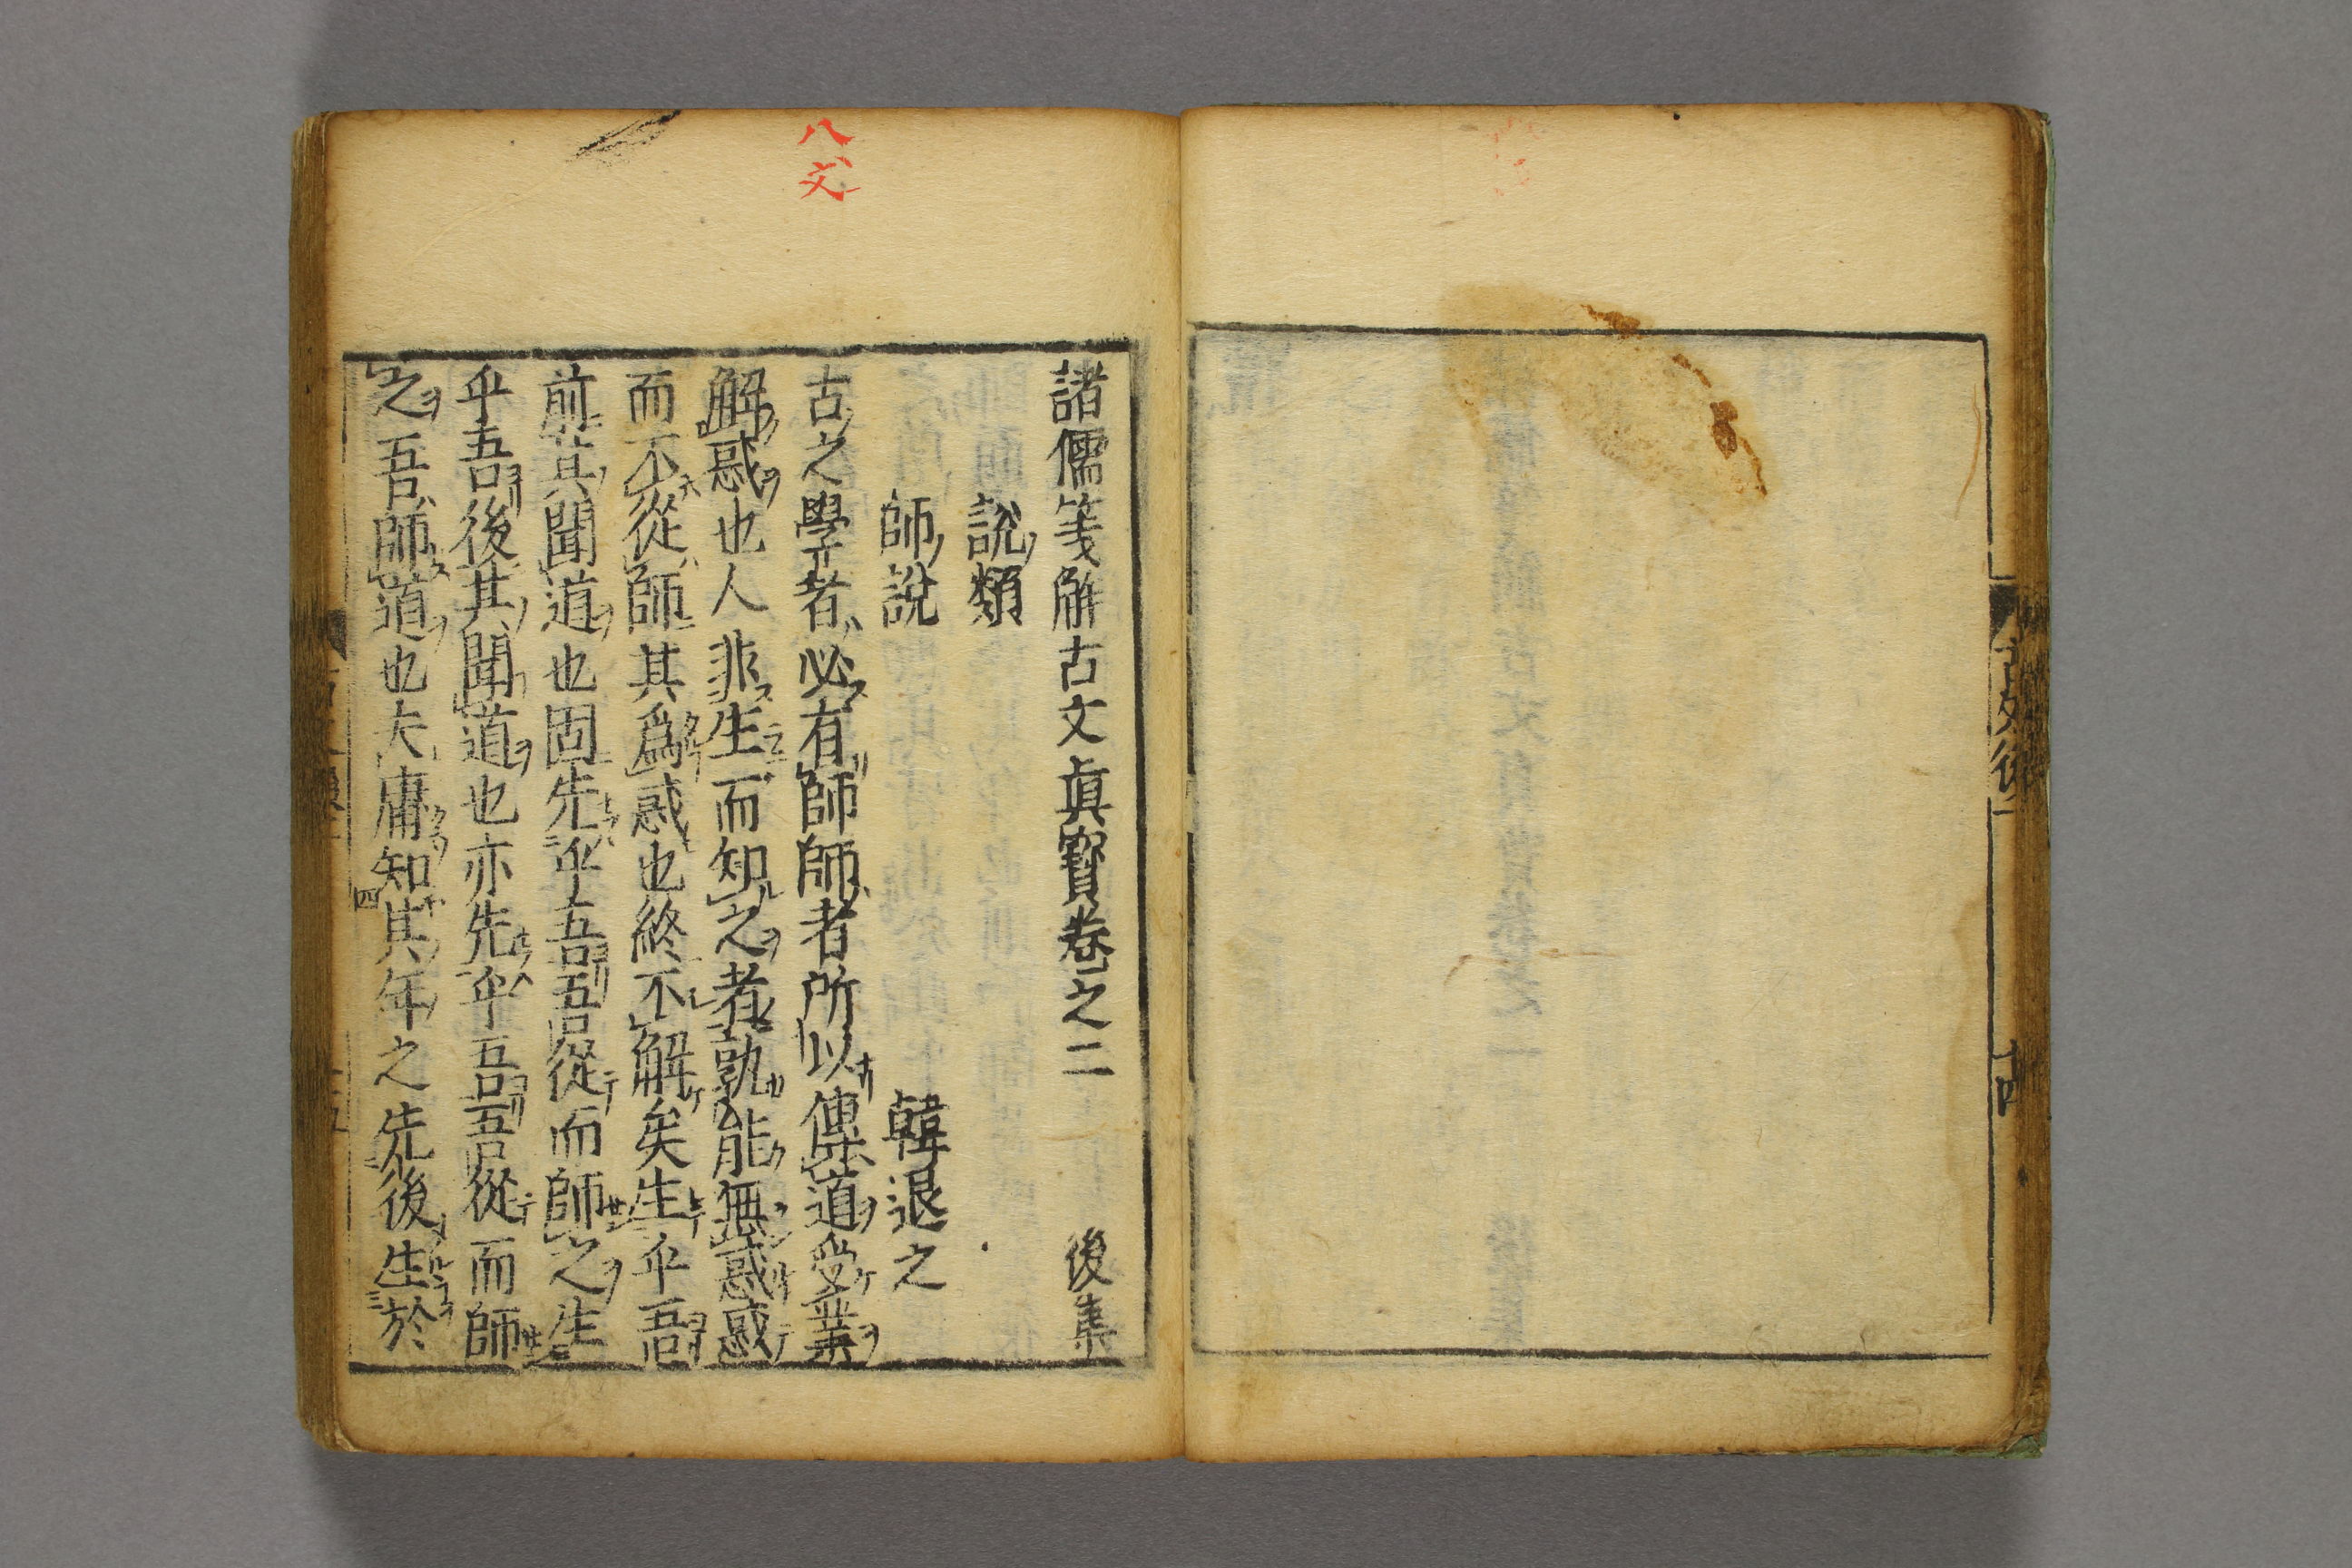 諸儒箋解古文眞寳卷之二 後集
說類
師說 韓退之
古之學者必有師師者所以傳道受業
解惑也人非生而知之者孰能無惑惑
而不從師其爲惑也終不解矣生乎吾
前其聞道也固先乎吾吾從而師之生
乎吾後其聞道也亦先乎吾吾從而師
之吾師道也夫庸知其年之先後生於
八文